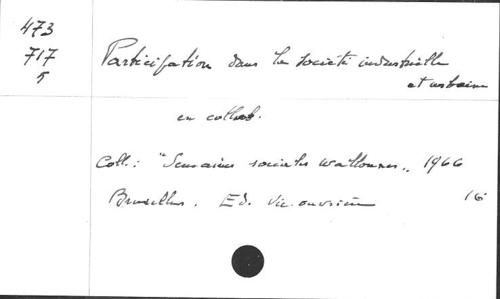 473
717
5
Participation dans la société industrielle
et urbaine
en collab.
Coll.: "Semaines sociales wallonnes„ 1966
Bruxelles. Ed. Vie ouvrière 16